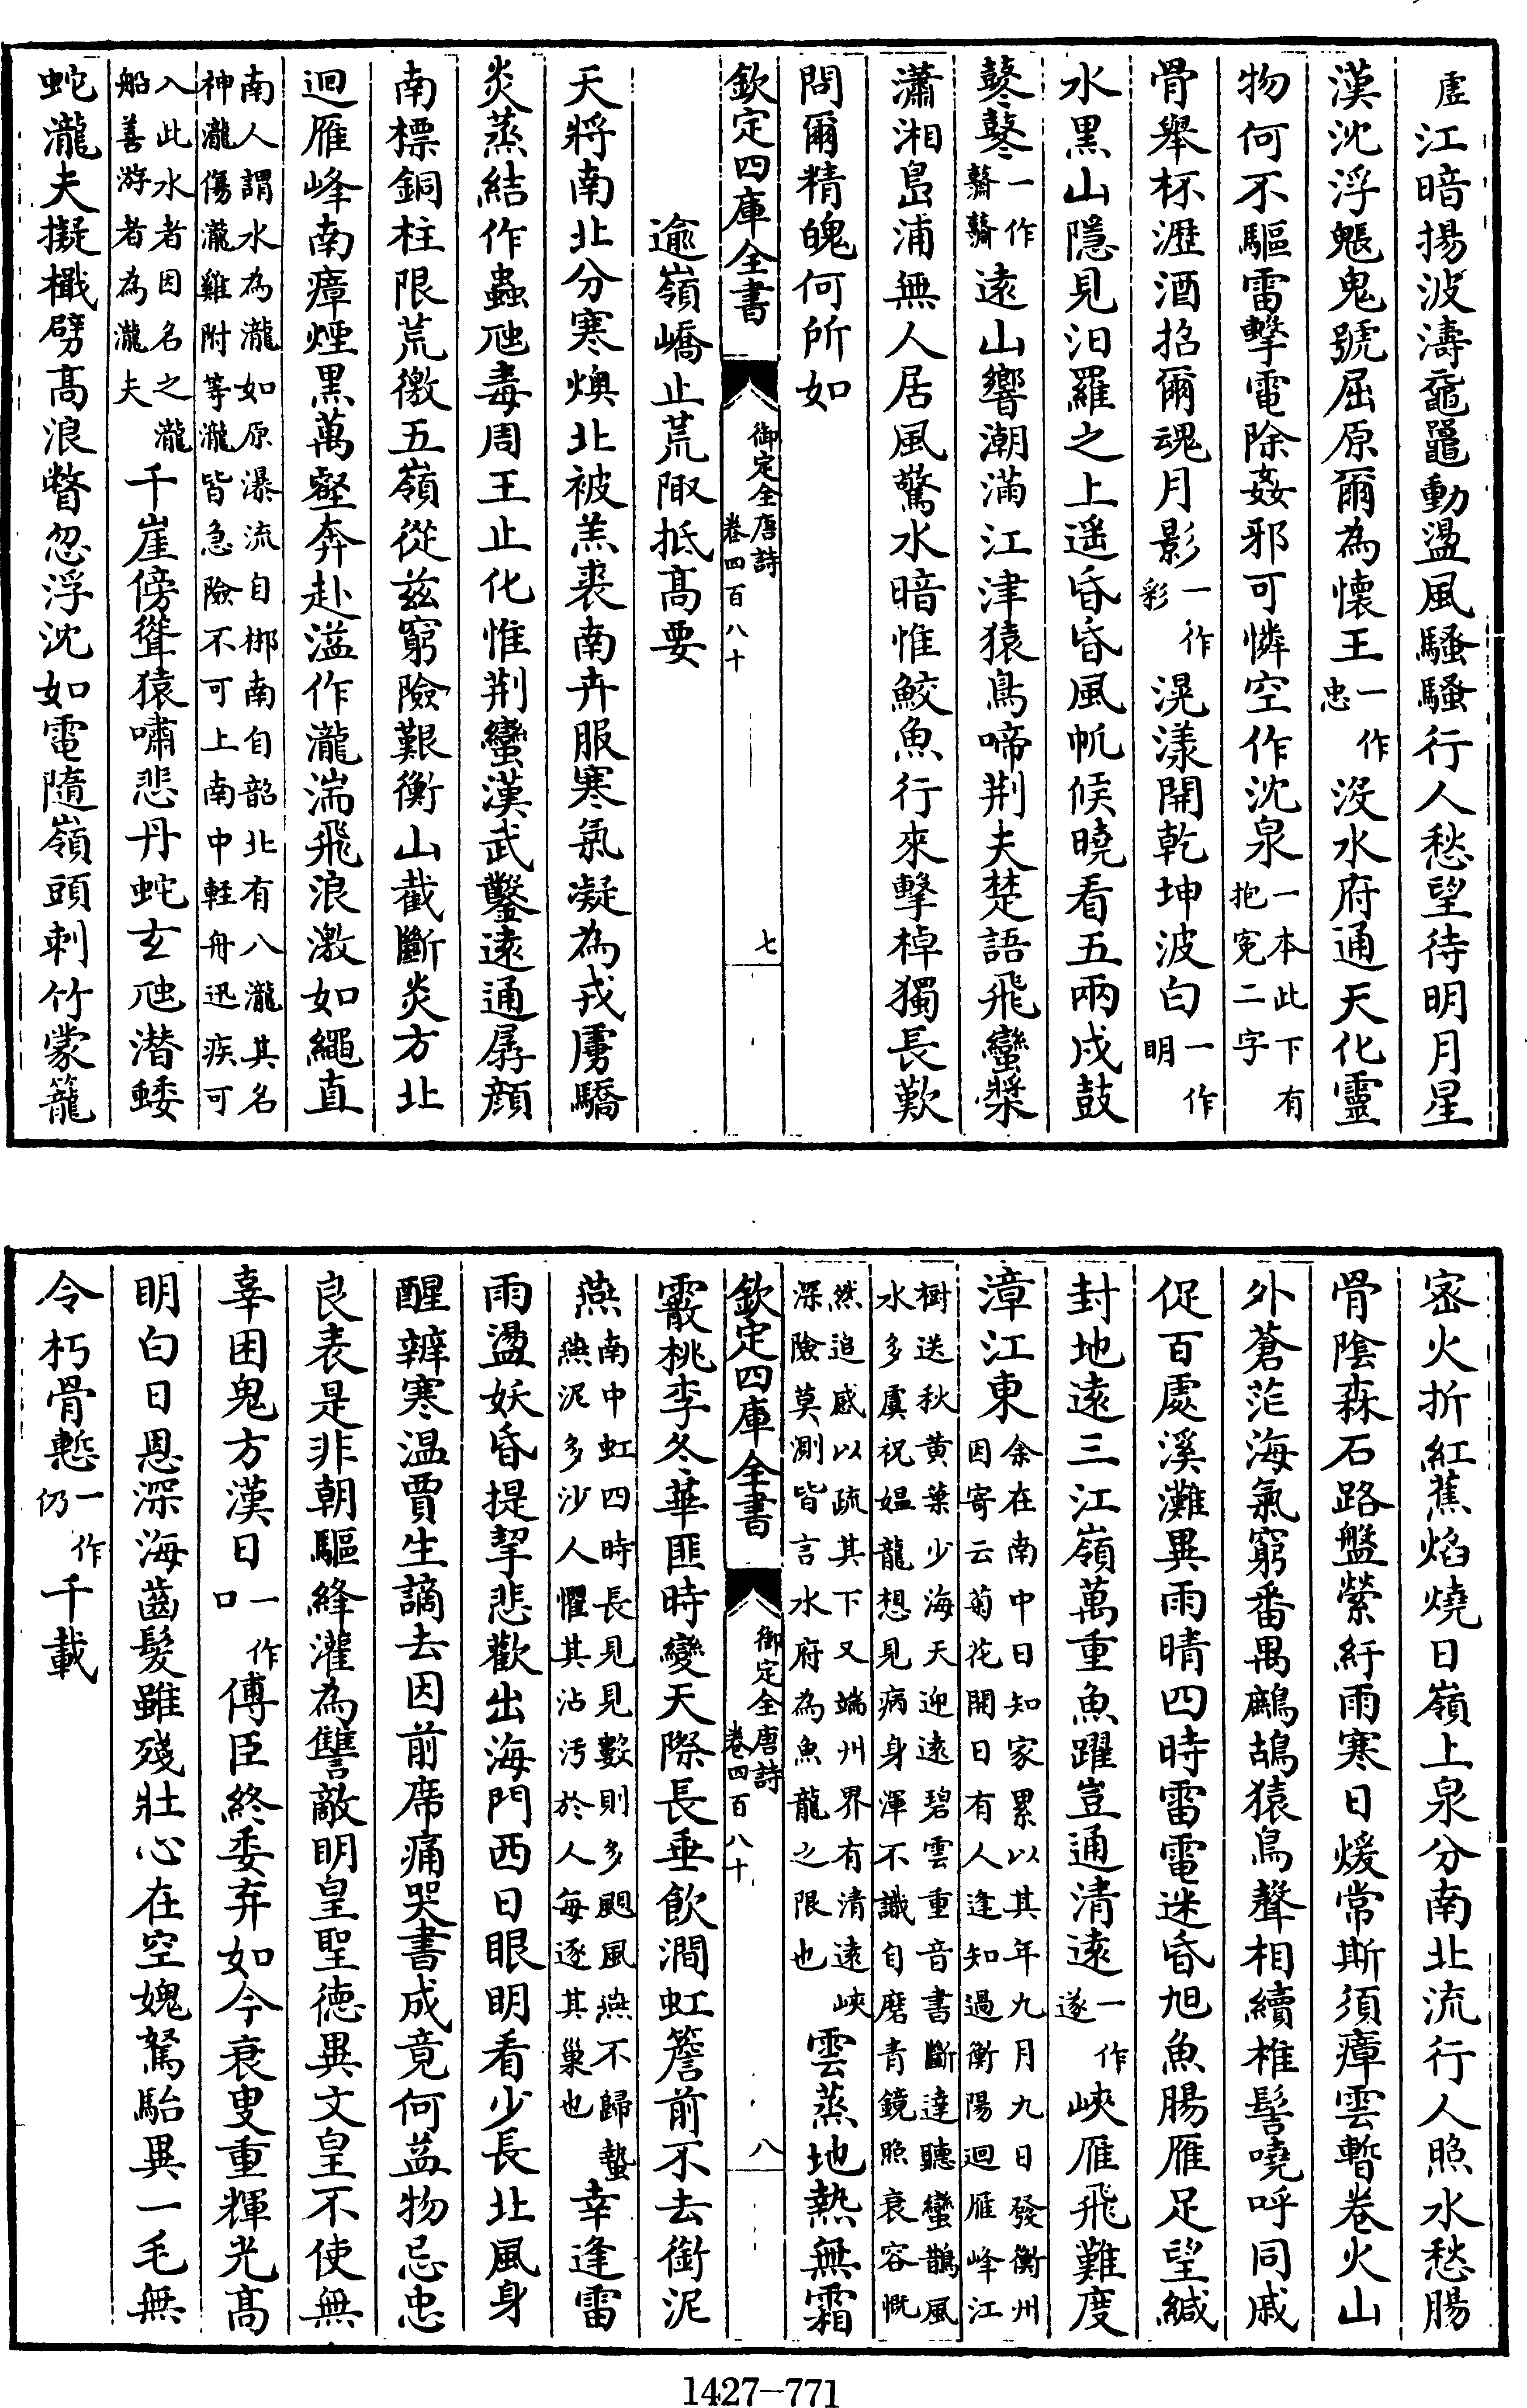 虛江暗揚波濤黿鼉動盪風騷騷行人愁望待明月星
漢沈浮魃鬼號屈原爾為懷王一作忠没水府通天化靈
物何不驅雷擊電除姦邪可憐空作沈泉一本此下有抱寃二字
骨舉杯瀝酒招爾魂月影一作彩滉漾開乾坤波白一作明
水黒山隱見汨羅之上遥昏昏風帆候曉看五兩戍鼓
鼕鼕一作鼘鼘遠山響潮滿江津猿鳥啼荆夫楚語飛蠻槳
瀟湘島浦無人居風驚水暗惟鮫魚行來擊棹獨長歎
問爾精魄何所如
欽定四庫全書
御定全唐詩
卷四百八十
七
逾嶺嶠止荒陬抵髙要
天將南北分寒燠北被羔裘南卉服寒氣凝為戎虜驕
炎蒸結作蟲虺毒周王止化惟荆蠻漢武鑿遠通孱顔
南標銅柱限荒徼五嶺從兹窮險艱衡山截斷炎方北
迴雁峰南瘴煙黒萬壑奔赴溢作瀧湍飛浪激如繩直
南人謂水為瀧如原瀑流自郴南自韶北有八瀧其名
神瀧傷瀧雞附等瀧皆急險不可上南中輕舟迅疾可
入此水者因名之瀧
船善游者為瀧夫
千崖傍聳猿嘯悲丹蛇𤣥虺潛蜲
蛇瀧夫擬檝劈髙浪瞥忽浮沈如電隨嶺頭刺竹蒙籠
密火折紅蕉焰燒日嶺上泉分南北流行人照水愁腸
骨陰森石路盤縈紆雨寒日煖常斯須瘴雲暫卷火山
外蒼茫海氣窮番禺鷓鴣猿鳥聲相續椎髻嘵呼同戚
促百處溪灘異雨晴四時雷電迷昏旭魚腸雁足望緘
封地逺三江嶺萬重魚躍豈通清逺一作遂峽雁飛難度
漳江東
余在南中日知家累以其年九月九日發衡州
因寄云菊花開日有人逢知過衡陽迴雁峰江
樹送秋黃葉少海天迎遠碧雲重音書斷達聽蠻鵲風
水多虞祝媪龍想見病身渾不識自磨青鏡照衰容慨
然追感以疏其下又端州界有清遠峽
深險莫測皆言水府為魚龍之限也
雲蒸地熱無霜
霰桃李冬華匪時變天際長垂飲澗虹簷前不去銜泥
燕
南中虹四時長見見數則多颶風燕不歸蟄
燕泥多沙人懼其沾汚於人每逐其巢也
幸逢雷
雨盪妖昏提挈悲歡出海門西日眼明看少長北風身
醒辨寒温賈生謫去因前席痛哭書成竟何益物忌忠
良表是非朝驅絳灌為讐敵明皇聖徳異文皇不使無
辜困鬼方漢日一作口傅臣終委弃如今衰叟重輝光髙
明白日恩深海齒髮雖殘壯心在空媿駑駘異一毛無
令朽骨慙一作仍千載
欽定四庫全書
御定全唐詩
卷四百八十
八
1427-771